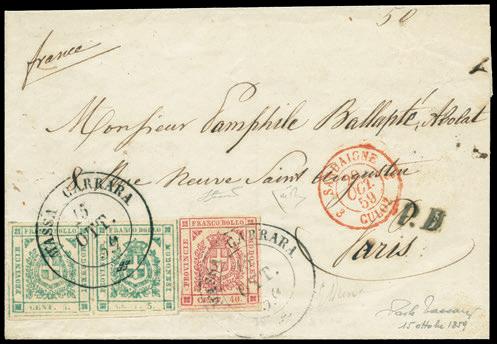 50
france
Monsieur Pamphile Ballapté, Avocat
Rue Neuve Saint Augustin
Paris.
MASSA CARRARA
15
OTT.
59
SARDAIGNE
OCT.
59
3 CULOZ 3
P.D
FRANCO BOLLO
PROVINCIE
MODONESI
CENT. 5.
FRANCO BOLLO
PROVINCIE
MODONESI
CENT. 5.
FRANCO BOLLO
PROVINCIE
CENT. 40.
CARRARA
OTT.
15 ottobre 1859